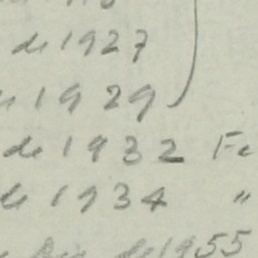 de 1927
1929
de 1932 Fe
de 1934 "
de 1955